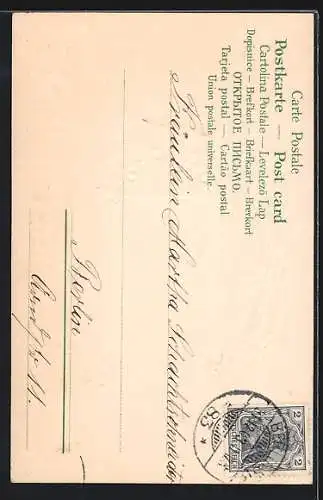 Carte Postale
Postkarte — Post card
Cartolina Postale — Levelező Lap
Dopisnice — Brefkort — Briefkaart — Brevkort
ОТКРЫТОЕ ПИСЬМО.
Tarjeta postal — Cartão postal
Union postale universelle.
Fräulein Martha Schachtschneider
Berlin
2 2